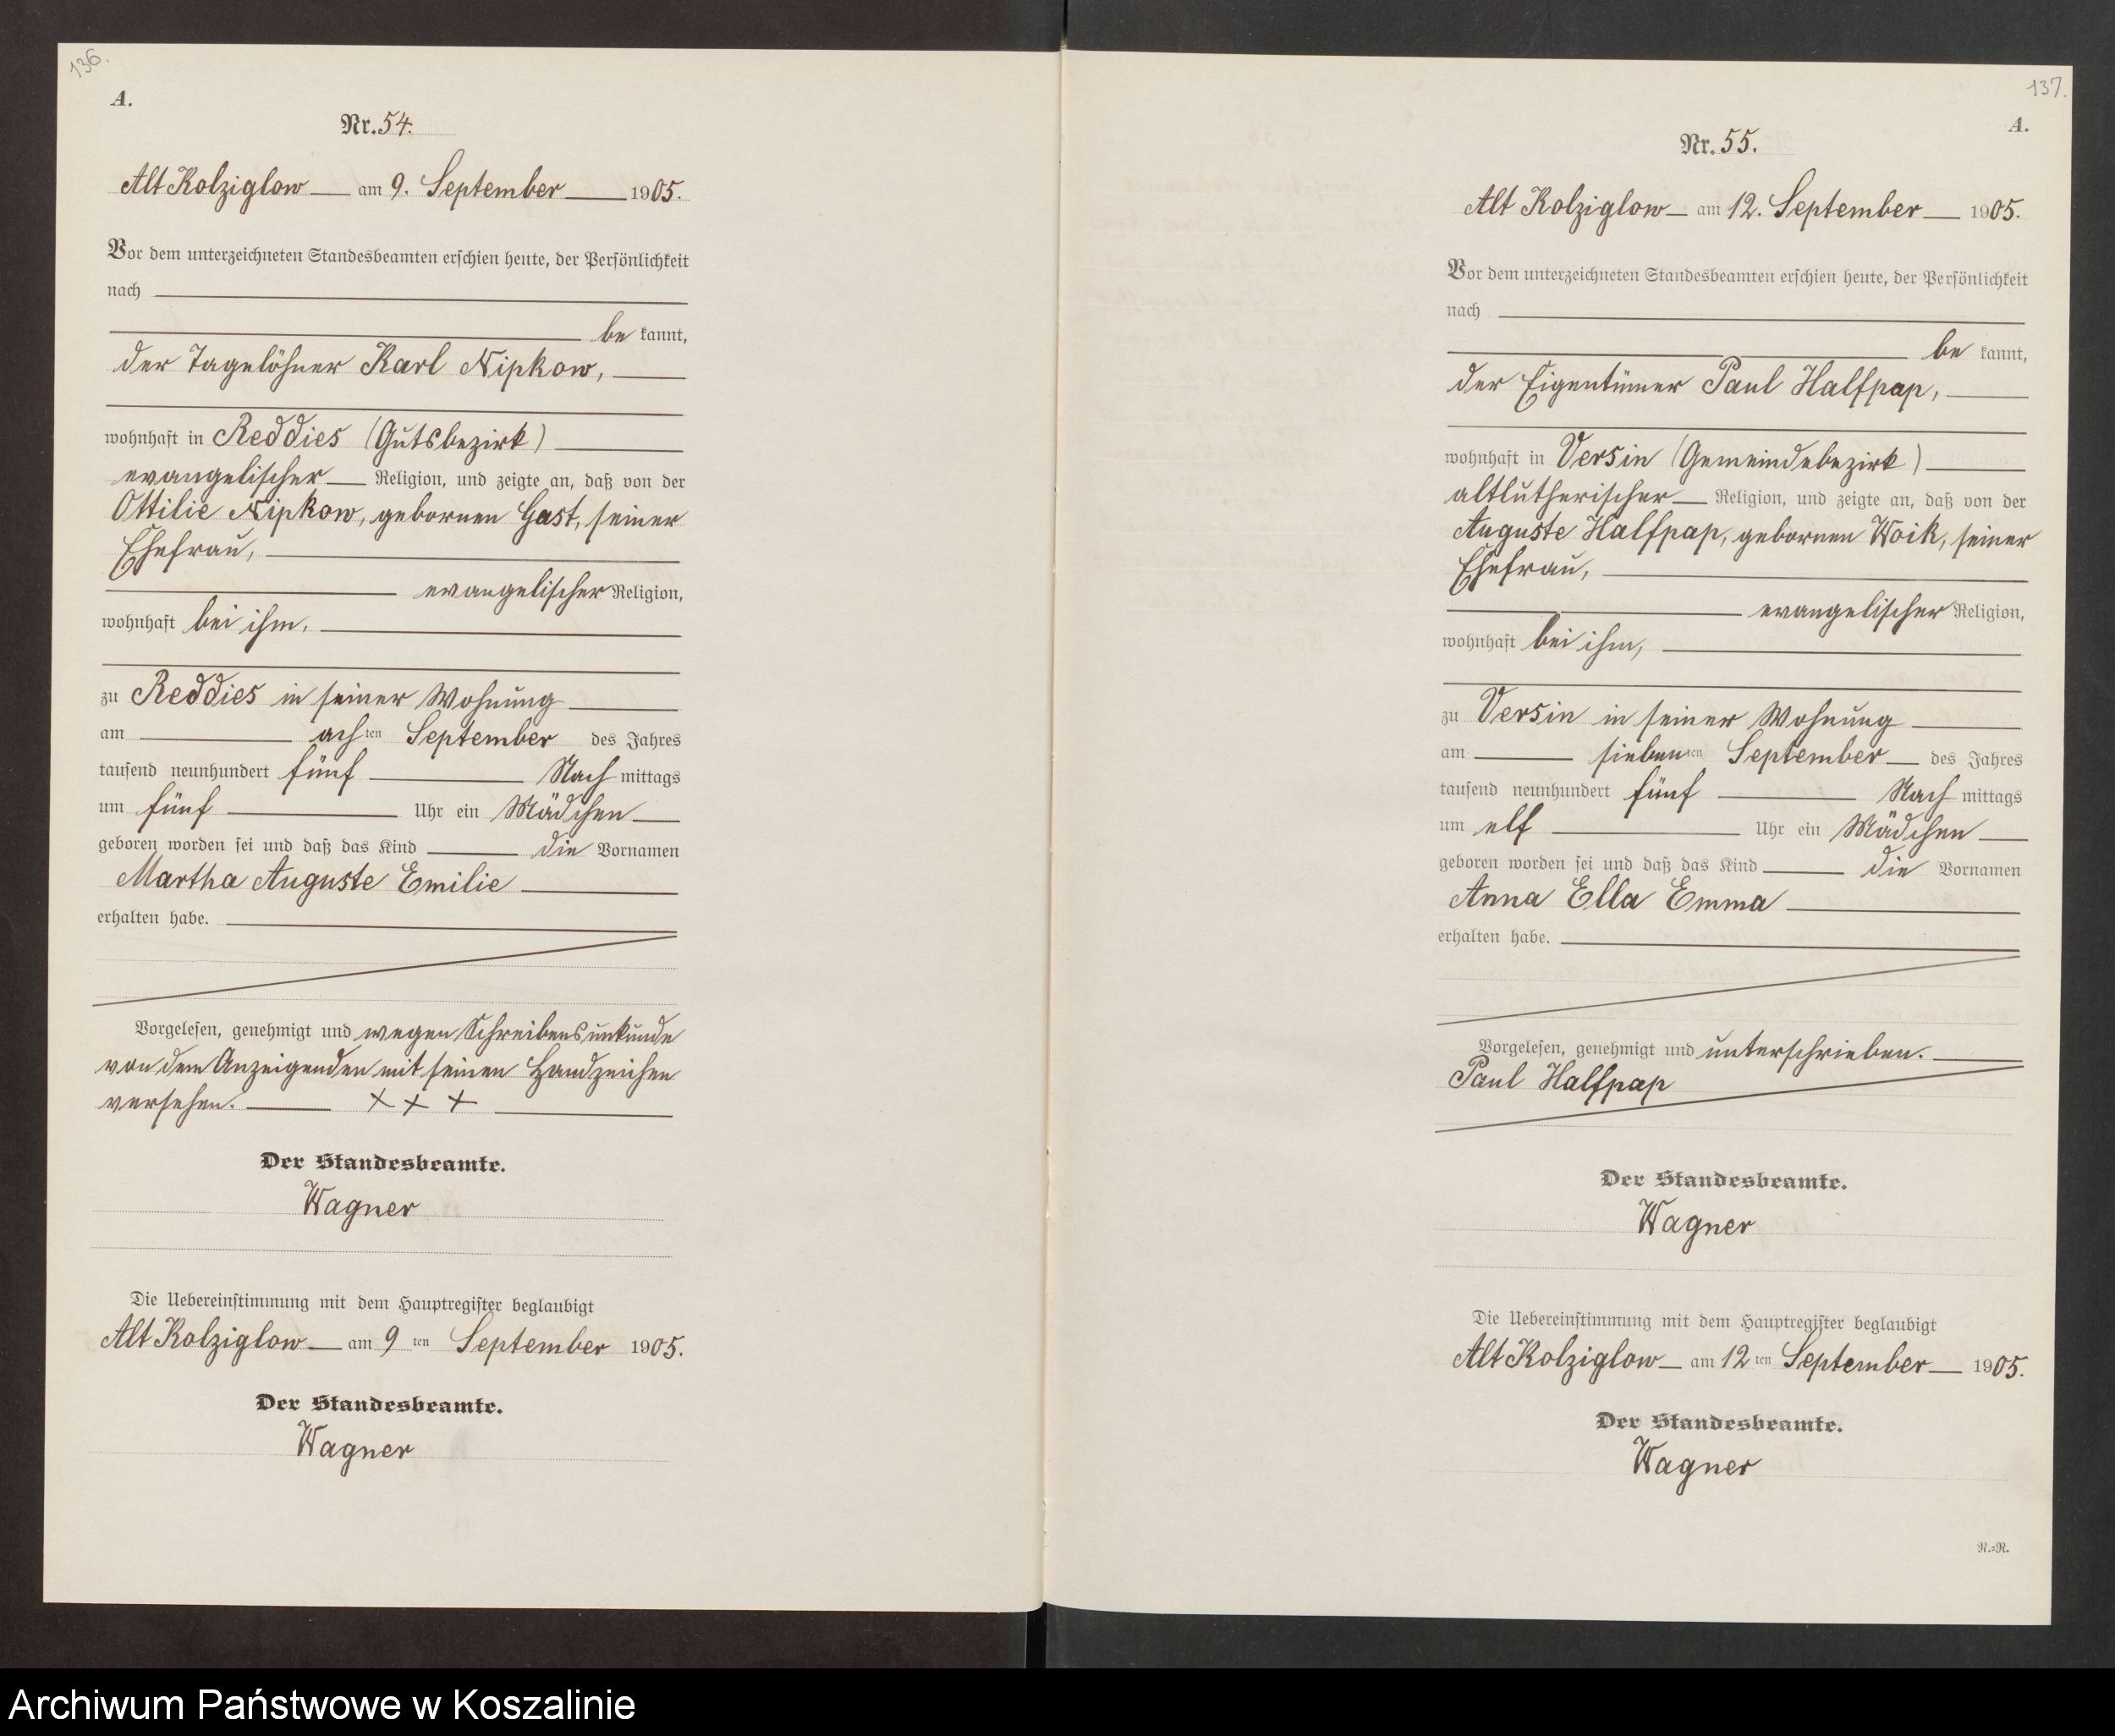 136.
A.
Nr. 54.
Alt Kolziglow am 9. September 1905.
Vor dem unterzeichneten Standesbeamten erschien heute, der Persönlichkeit
nach
be kannt,
der Tagelöhner Karl Nipkow,
wohnhaft in Reddies (Gutsbezirk)
evangelischer Religion, und zeigte an, daß von der
Ottilie Nipkow, gebornen Gast, seiner
Ehefrau,
evangelischer Religion,
wohnhaft bei ihm,
zu Reddies in seiner Wohnung
am achten September des Jahres
tausend neunhundert fünf Nachmittags
um fünf Uhr ein Mädchen
geboren worden sei und daß das Kind die Vornamen
Martha Auguste Emilie
erhalten habe.
Vorgelesen, genehmigt und wegen Schreibensunkunde
von dem Anzeigenden mit seinen Handzeichen
versehen. + + +
Der Standesbeamte.
Wagner
Die Uebereinstimmung mit dem Hauptregister beglaubigt
Alt Kolziglow am 9ten September 1905.
Der Standesbeamte.
Wagner
137.
A.
Nr. 55.
Alt Kolziglow am 12. September 1905.
Vor dem unterzeichneten Standesbeamten erschien heute, der Persönlichkeit
nach
be kannt,
der Eigentümer Paul Halfpap,
wohnhaft in Versin (Gemeindebezirk)
altlutherischer Religion, und zeigte an, daß von der
Auguste Halfpap, gebornen Woik, seiner
Ehefrau,
evangelischer Religion,
wohnhaft bei ihm,
zu Versin in seiner Wohnung
am siebenten September des Jahres
tausend neunhundert fünf Nachmittags
um elf Uhr ein Mädchen
geboren worden sei und daß das Kind die Vornamen
Anna Ella Emma
erhalten habe.
Vorgelesen, genehmigt und unterschrieben.
Paul Halfpap
Der Standesbeamte.
Wagner
Die Uebereinstimmung mit dem Hauptregister beglaubigt
Alt Kolziglow am 12ten September 1905.
Der Standesbeamte.
Wagner
N.=R.
Archiwum Państwowe w Koszalinie